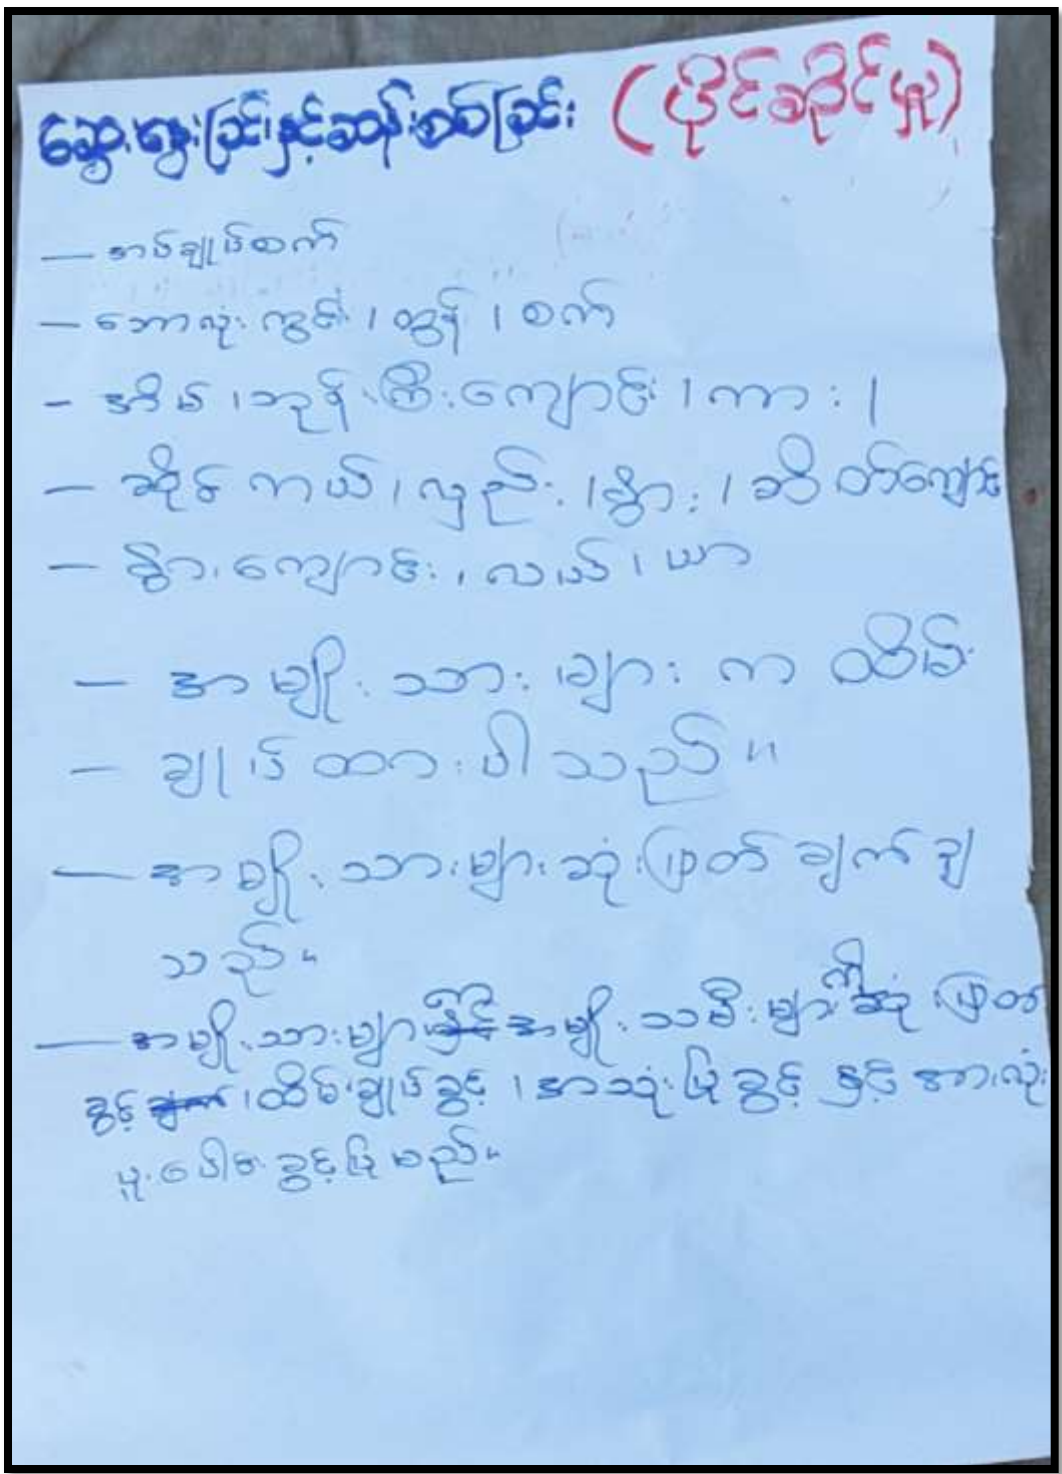 ဆွေးနွေးခြင်းနှင့်ဆန်းစစ်ခြင်း (ပိုင်ဆိုင်မှု)
— အပ်ချုပ်စက်
— ဘောလုံးကွင်း၊ ထွန်၊ စက်
– အိမ်၊ ဘုန်းကြီးကျောင်း၊ ကား၊
– ဆိုင်ကယ်၊ လှည်း၊ နွား၊ ဆိတ်ကျောင်း
– နွားကျောင်း၊ လယ်၊ ယာ
– အမျိုးသားများက ထိမ်း
– ချုပ်ထားပါသည်။
— အမျိုးသားများဆုံးဖြတ်ချက်ချ
သည်။
— အမျိုးသားများ အမျိုးသမီးများကို ဆုံးဖြတ်
ခွင့် ၊ထိမ်းချုပ်ခွင့်၊ အသုံးပြုခွင့် နှင့် အားလုံး
ပူးပေါင်းခွင့်ပြုမည်။